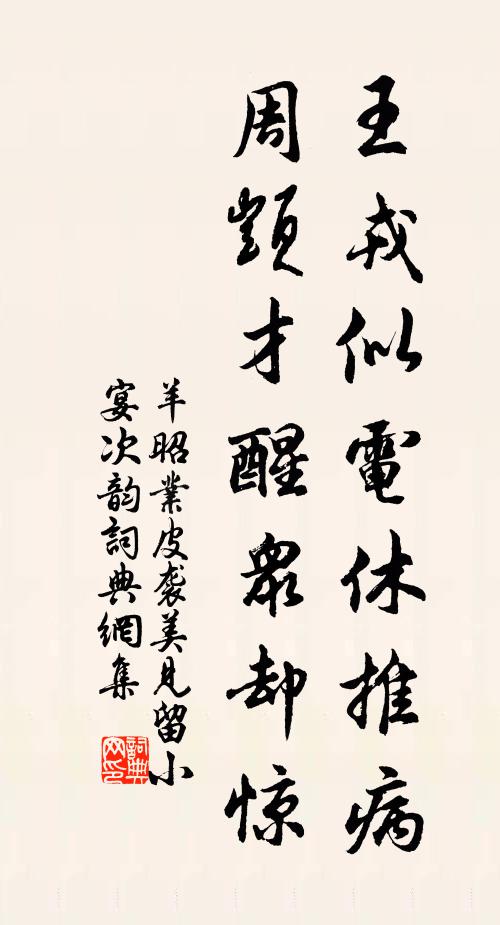 王戎似電休推病
周顗才醒衆却惊
羊昭業皮袭美見留小
宴次韵詞典網集
詞典網印